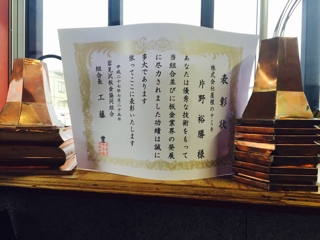 表彰状
株式会社屋根のナミキ
片野裕勝様
あなたは優秀な技術をもって
当組合並びに板金業界の発展
に尽力されました功績は誠に
多大であります
依ってここに表彰いたします
平成二十七年七月二十五日
岩見沢板金協同組合
組合長 工藤